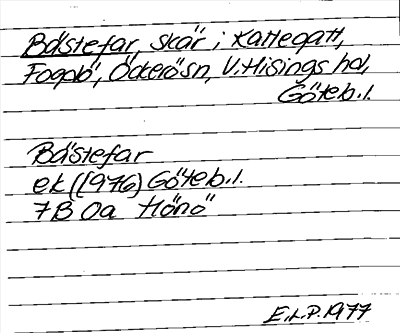 Båstefar, skär i Kattegatt,
Fogdö, Öckerö sn, V. Hisings hd,
Göteb. l.
Båstefar
ek (1976) Göteb. l.
7B 0a Hönö
E.L.P. 1977